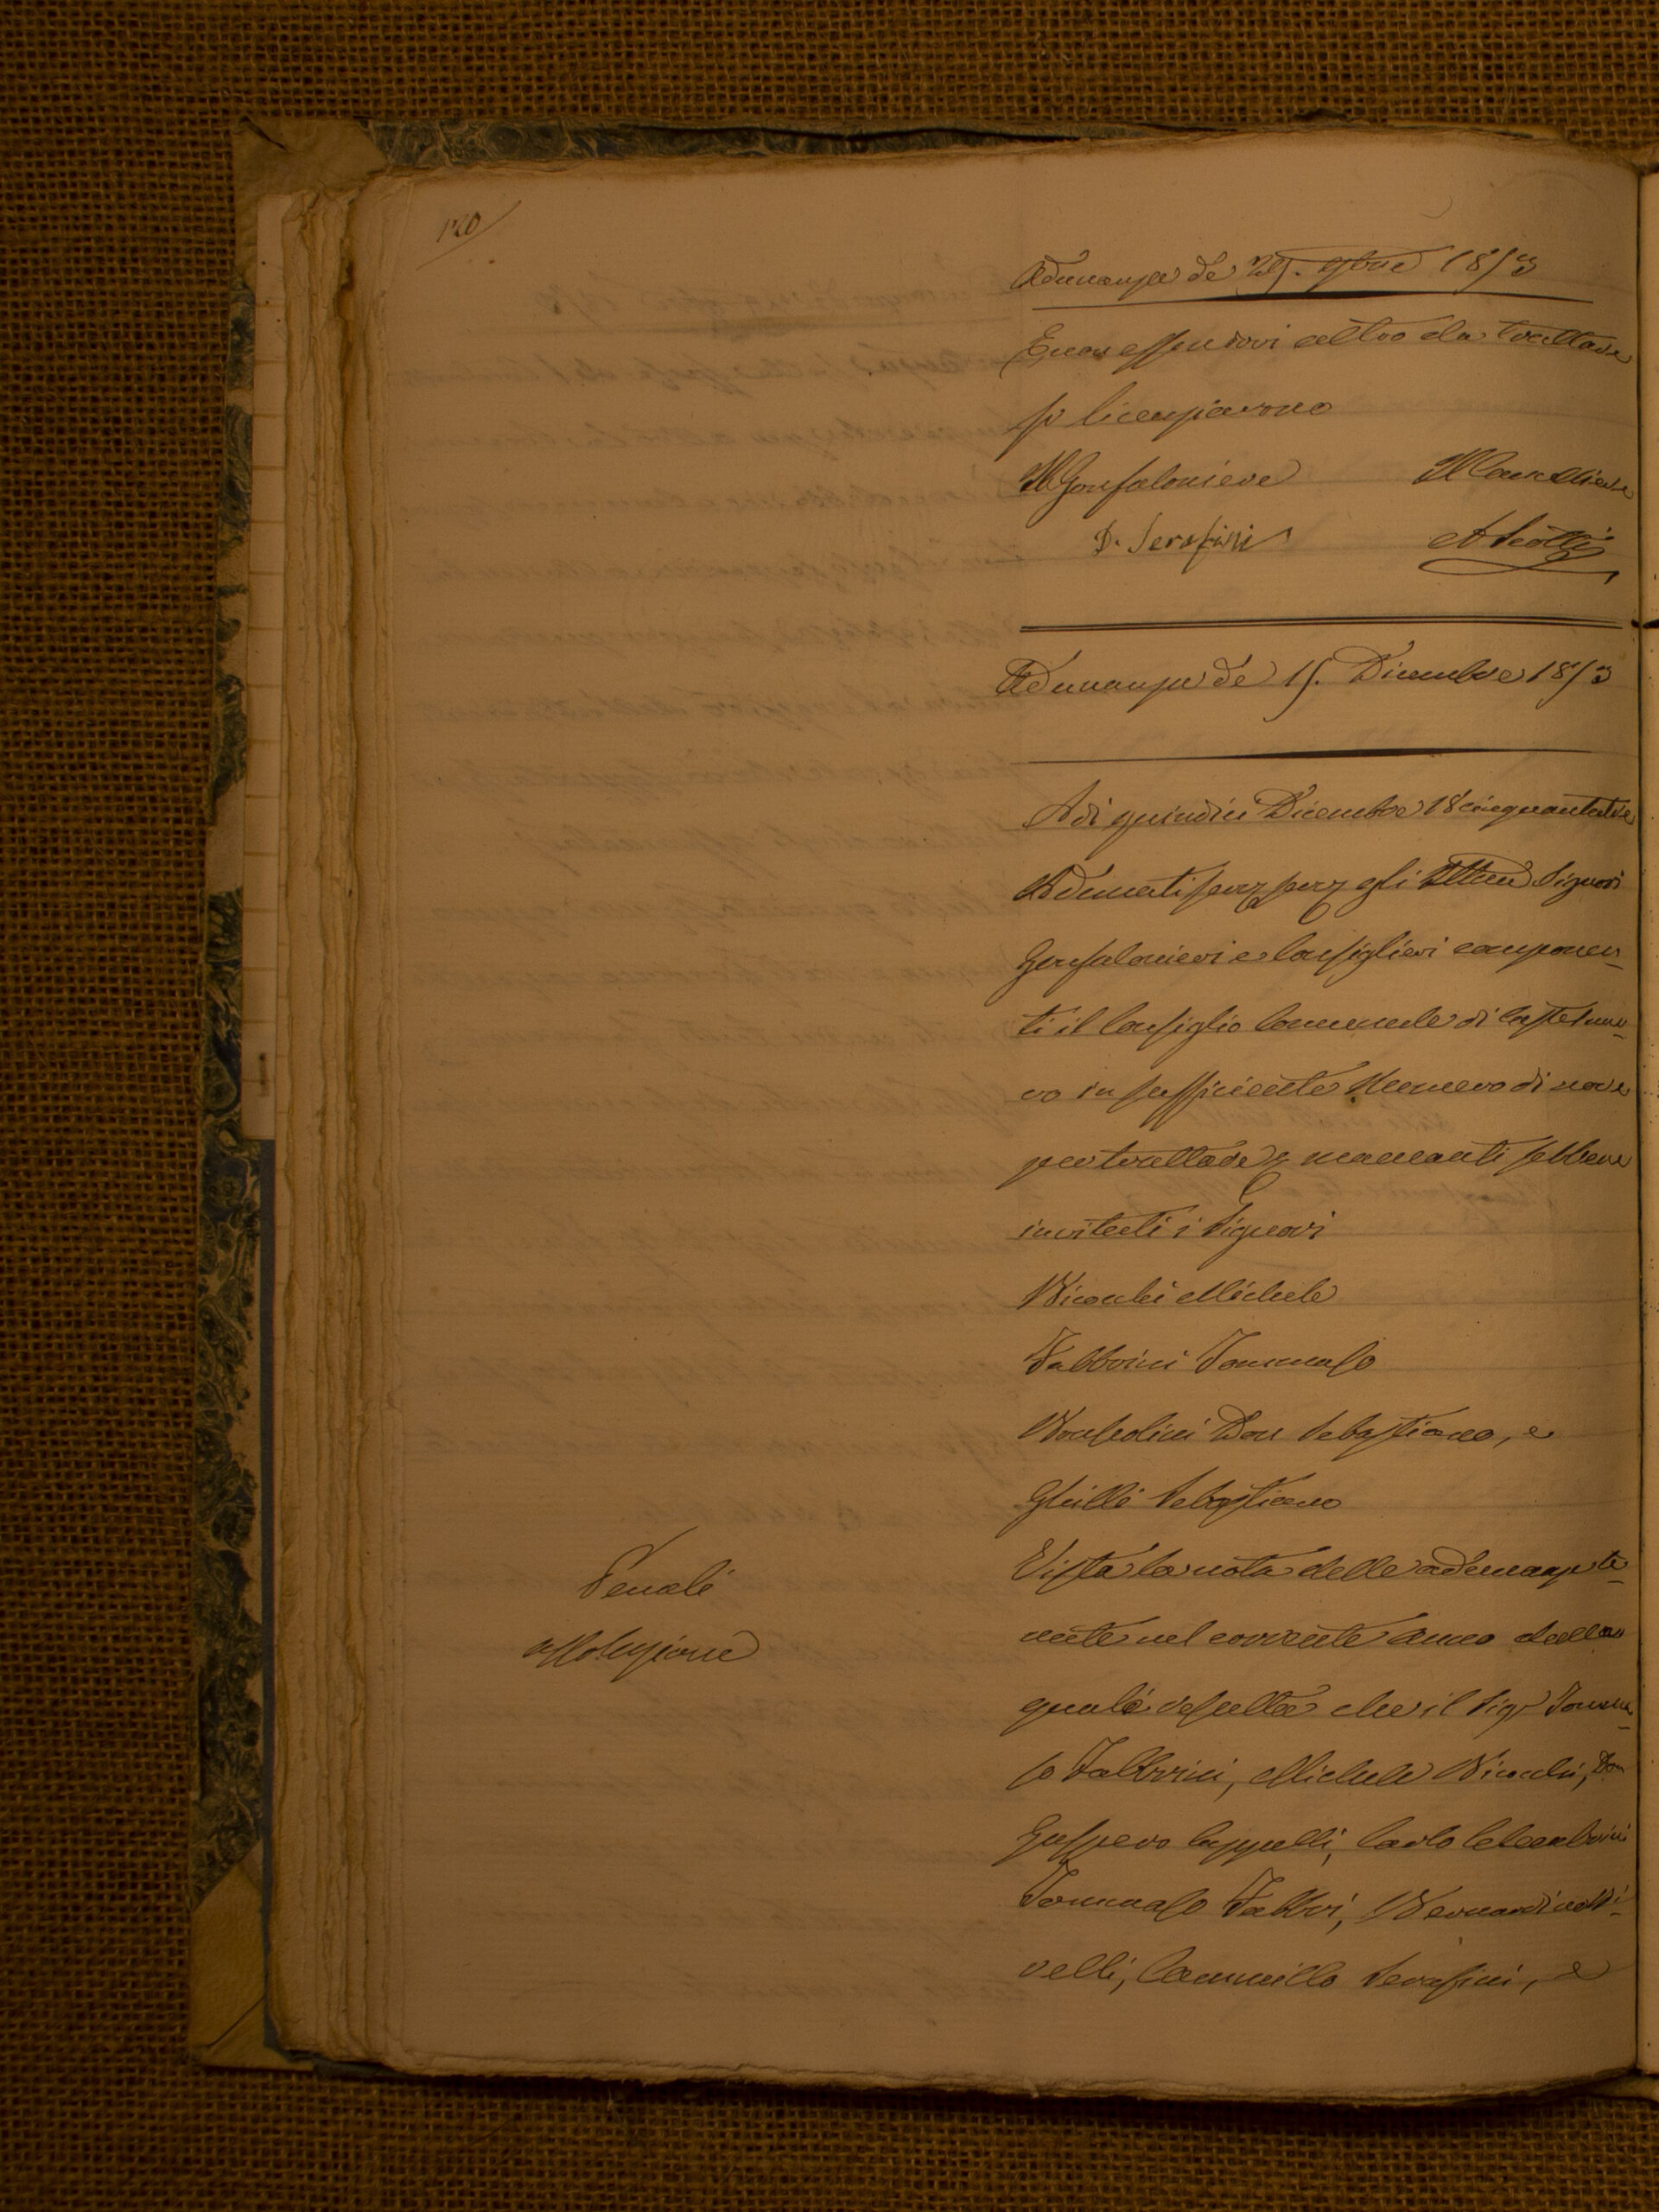 120
Adunanza de 29. 9bre 1853
E non essendovi altro da trattare
si licenziarono
Il Gonfaloniere Il Cancelliere
D. Serafini A Scotti
Adunanza de 15. Dicembre 1853
Adi quindici Dicembre 18cinquantatre
Adunati gli Illmi Signori
Gonfalonieri e Consiglieri componen-
ti il Consiglio Comunale di Castelnuo-
vo in sufficiente Numero di nove
per trattare, mancanti sebbene
invitati i Signori
Michele
Fabbrini Tommaso
Don Sebastiano, e
Ghilli Sebastiano
Penale
assoluzione
Vista la nota delle adunanze te-
nute nel corrente anno dalla
quale resulta che il Sigr Tomma-
so Fabbrini, Michele Don
Gaspero Cappelli, Carlo
Tommaso Fabbri,
relli, Cammillo Serafini, e